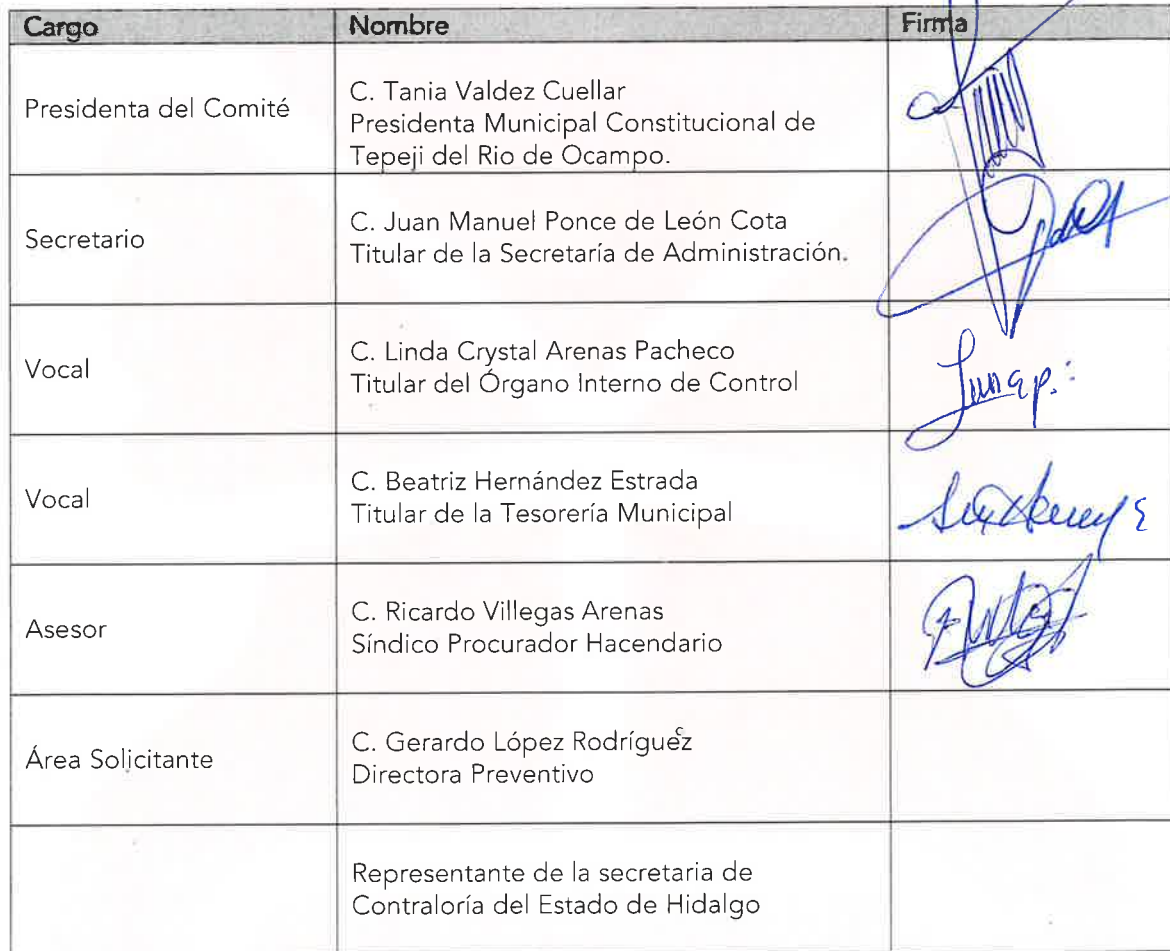 Cargo Nombre Firma
Presidenta del Comité
C. Tania Valdez Cuellar
Presidenta Municipal Constitucional de
Tepeji del Rio de Ocampo.
Secretario
C. Juan Manuel Ponce de León Cota
Titular de la Secretaría de Administración.
Vocal
C. Linda Crystal Arenas Pacheco
Titular del Órgano Interno de Control
Vocal
C. Beatriz Hernández Estrada
Titular de la Tesorería Municipal
Asesor
C. Ricardo Villegas Arenas
Síndico Procurador Hacendario
Área Solicitante
C. Gerardo López Rodríguez
Directora Preventivo
Representante de la secretaria de
Contraloría del Estado de Hidalgo